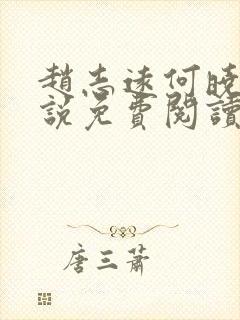 趙志遠何曉
說免費閱讀
唐三蕭